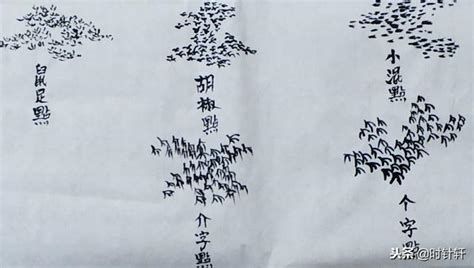 鼠足點
胡椒點
小混點
介字點
个字點
头条@时针轩